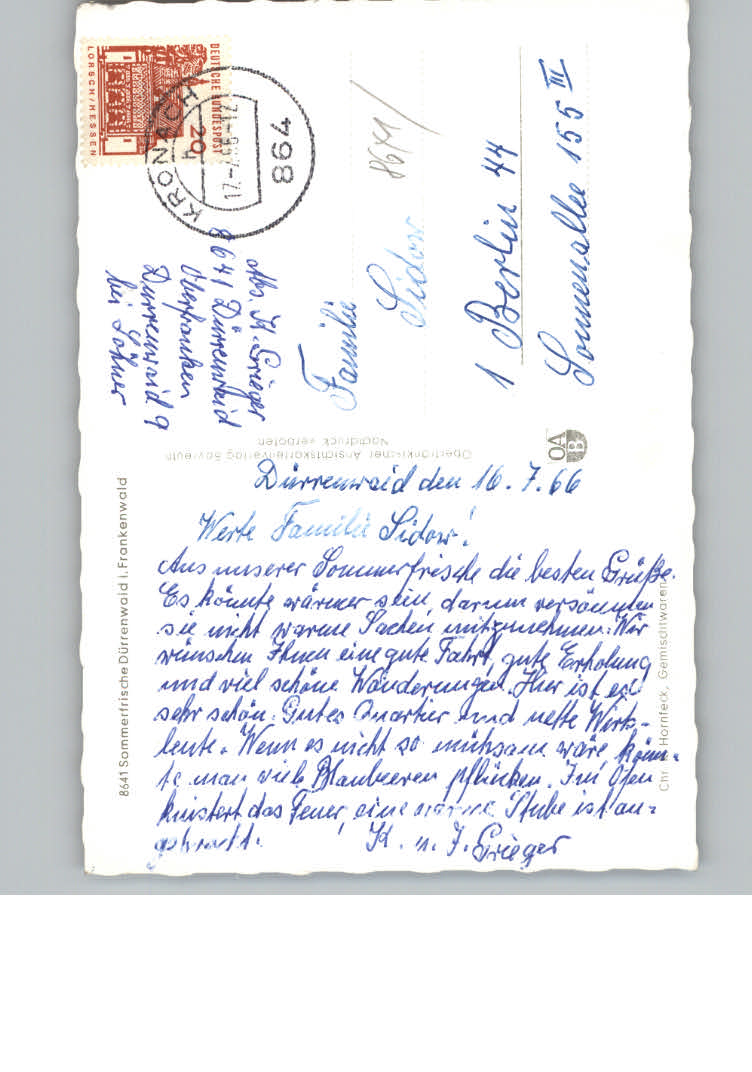 DEUTSCHE BUNDESPOST
20
LORSCH/HESSEN
KRONACH
17.-7.66-12
864
Abs. K. Grieger
8641 Dürrenwaid
Oberfranken
Dürrenwaid 9
bei Löhner
8641/
Familie
Sidow
1 Berlin 44
Sonnenallee 155 III
Oberfränkischer Ansichtskartenverlag Bayreuth
Nachdruck verboten
OA
B
8641 Sommerfrische Dürrenwaid i. Frankenwald
Dürrenwaid den 16.7.66
Werte Familie Sidow!
Aus unserer Sommerfrische die besten Grüße.
Es könnte wärmer sein, darum versäumen
sie nicht warme Sachen mitzunehmen. Wir
wünschen Ihnen eine gute Fahrt, gute Erholung
und viel schöne Wanderungen. Hier ist es
sehr schön. Gutes Quartier und nette Wirts-
leute. Wenn es nicht so mühsam wäre, könn-
te man viele Blaubeeren pflücken. Im Ofen
knistert das Feuer, eine warme Stube ist an-
gebracht.
K. u. J. Grieger
Hornfeck, Gemischtwaren